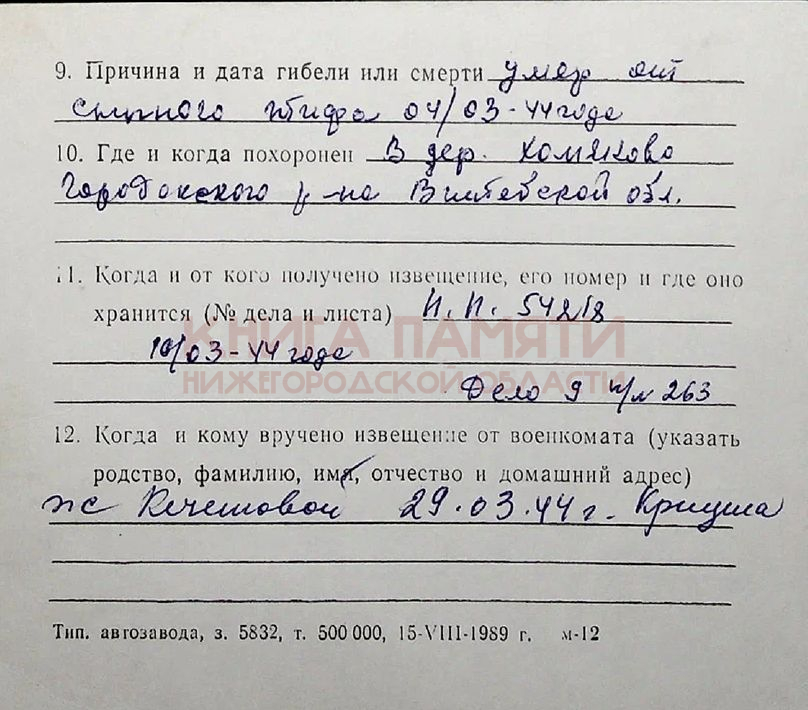 9. Причина и дата гибели или смерти умер от
сыпного тифа 04/03-44 года
10. Где и когда похоронен В дер. Хомяково
Городокского р-на Витебской обл.
11. Когда и от кого получено извещение, его номер и где оно
хранится (№ дела и листа) П.П. 54218
КНИГА ПАМЯТИ
10/03-44 года
НИЖЕГОРОДСКОЙ ОБЛАСТИ
Дело 9 п/н 263
12. Когда и кому вручено извещение от военкомата (указать
родство, фамилию, имя, отчество и домашний адрес)
ж с 29.03.44 г.
Тип. автозавода, з. 5832, т. 500 000, 15-VIII-1989 г. м-12